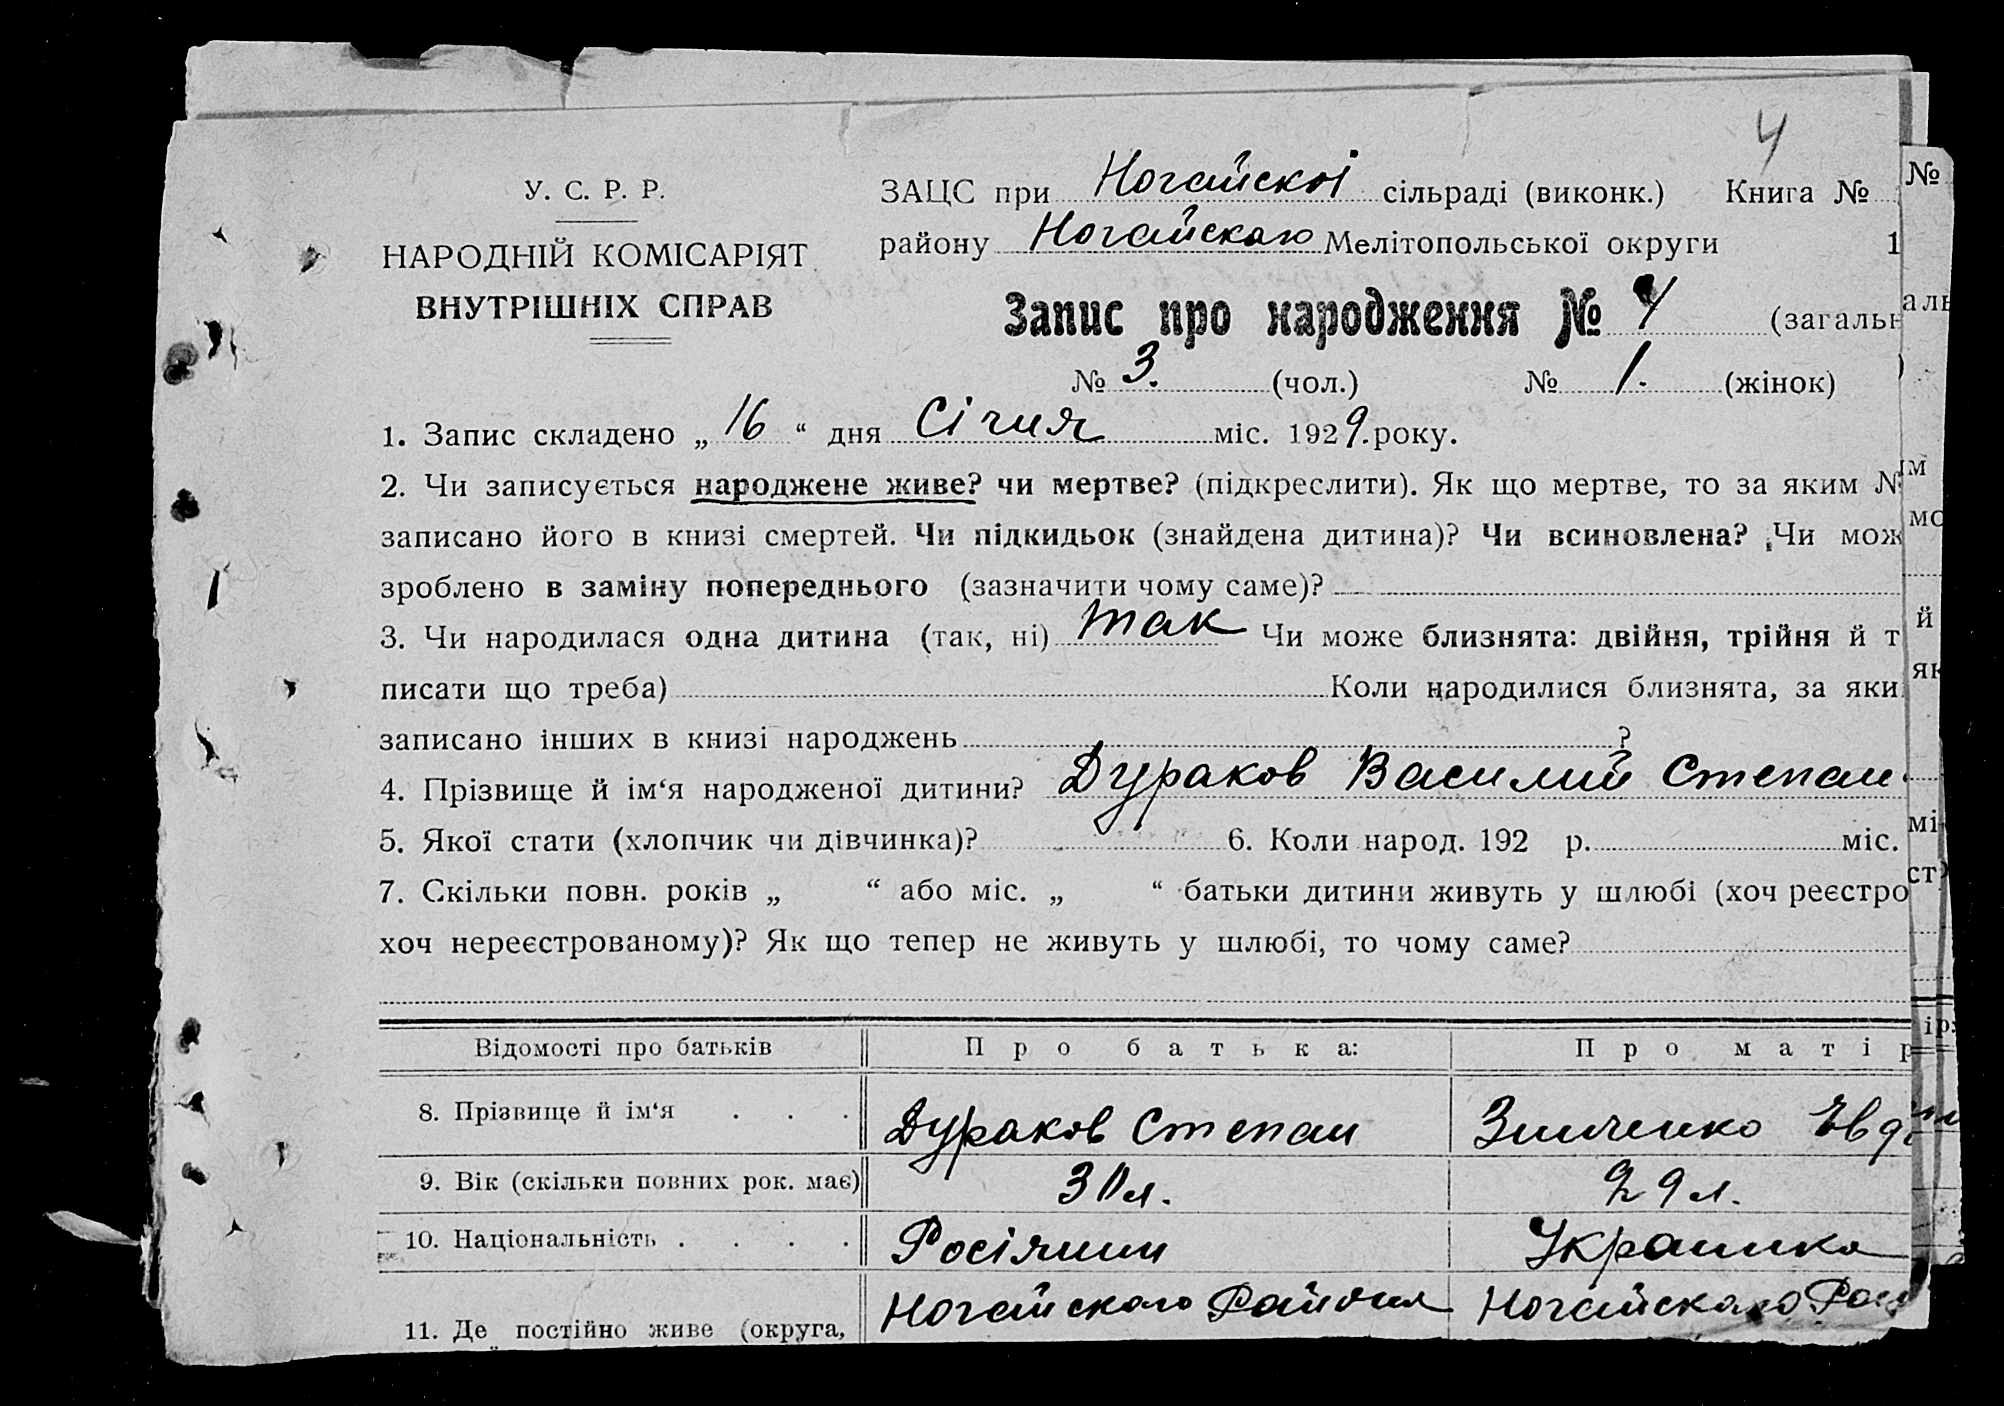 4
У. С. Р. Р.
НАРОДНІЙ КОМІСАРІЯТ
ВНУТРІШНІХ СПРАВ
ЗАЦС при Ногайскоі сільраді (виконк.) Книга №
району Ногайскаго Мелітопольської округи 1
Запис про народження № 4 (загальн
№ 3. (чол.) № 1. (жінок)
1. Запис складено „ 16 “ дня Січня міс. 1929. року.
2. Чи записується народжене живе? чи мертве? (підкреслити). Як що мертве, то за яким №
записано його в книзі смертей. Чи підкидьок (знайдена дитина)? Чи всиновлена? Чи мож
зроблено в заміну попереднього (зазначити чому саме)?
3. Чи народилася одна дитина (так, ні) так Чи може близнята: двійня, трійня й т
писати що треба) Коли народилися близнята, за яки
записано інших в книзі народжень ?
4. Прізвище й ім‘я народженої дитини? Дураков Василий Степан
5. Якої стати (хлопчик чи дівчинка)? 6. Коли народ. 192 р. міс.
7. Скільки повн. років „ “ або міс. „ “ батьки дитини живуть у шлюбі (хоч реєстро
хоч нереєстрованому)? Як що тепер не живуть у шлюбі, то чому саме?
Відомості про батьків Про батька: Про матір
8. Прізвище й ім‘я . . . Дураков Степан Зинченко Евд
9. Вік (скільки повних рок. має) 30 л. 29 л.
10. Національність . . . . Росіянин Украинка
11. Де постійно живе (округа, Ногайскаго Района Ногайскаго Рай
№
аль
)
ім
мо
й
як
мі
ст
ір: